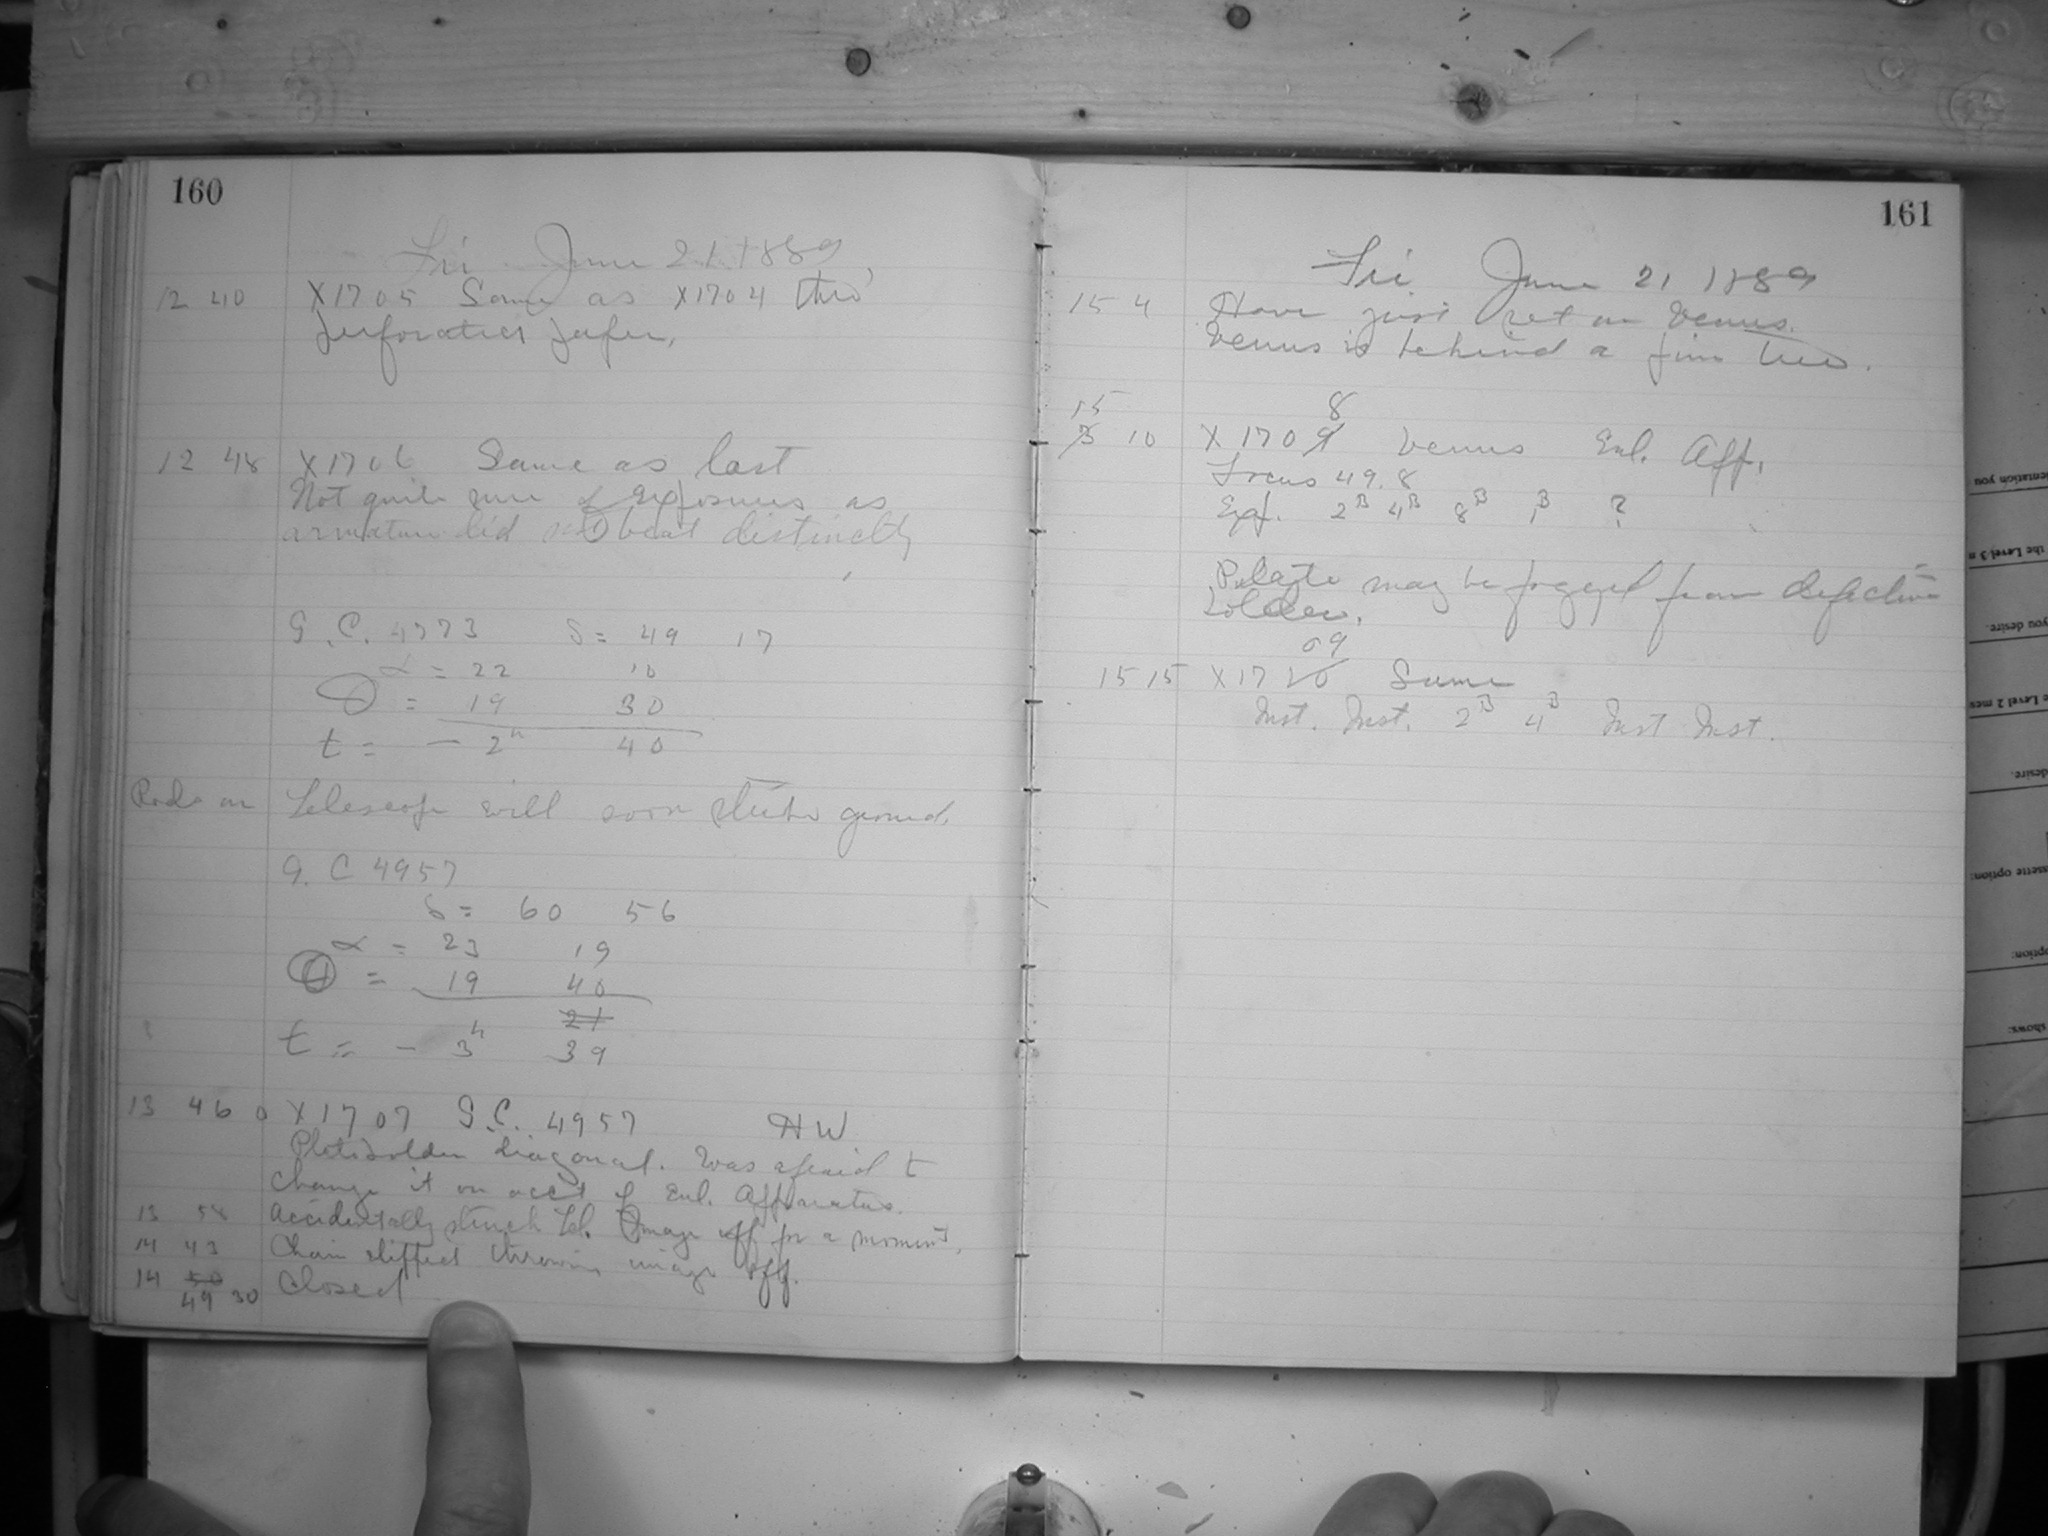 160
Fri June 21 1889
12 40 X1705 Same as X1704 thro'
perforated paper.
12 48 X1706 Same as last
Not quite sure of exposures as
armature did not beat distinctly
G.C. 4773 δ = 49 17
α = 22 10
Θ = 19 30
t = - 2h 40
Rods on Telescope will soon strike ground.
G.C 4957
δ = 60 56
α = 23 19
Θ = 19 40
21
t = - 3h 39
13 46 0 X1707 G.C. 4957 HW
Plateholder diagonal. Was afraid to
change it on acct of Enl. Apparatus.
13 58 Accidentally struck Tel. Image off for a moment.
14 43 Chain slipped throwing image off.
14 50 Closed
49 30
161
Fri June 21 1889
15 4 Have just set on Venus.
Venus is behind a pine tree.
15 8
3 10 X1709 Venus Enl. App.
Focus 49.8
Exp. 2B 4B 8B 1B ?
Plate may be fogged from defective
holder.
09
15 15 X1710 Same
Inst. Inst. 2B 4B Inst Inst.
entation you
the Level 3 m
you desire.
e Level 2 mea
desire.
ssette option:
option:
shows: